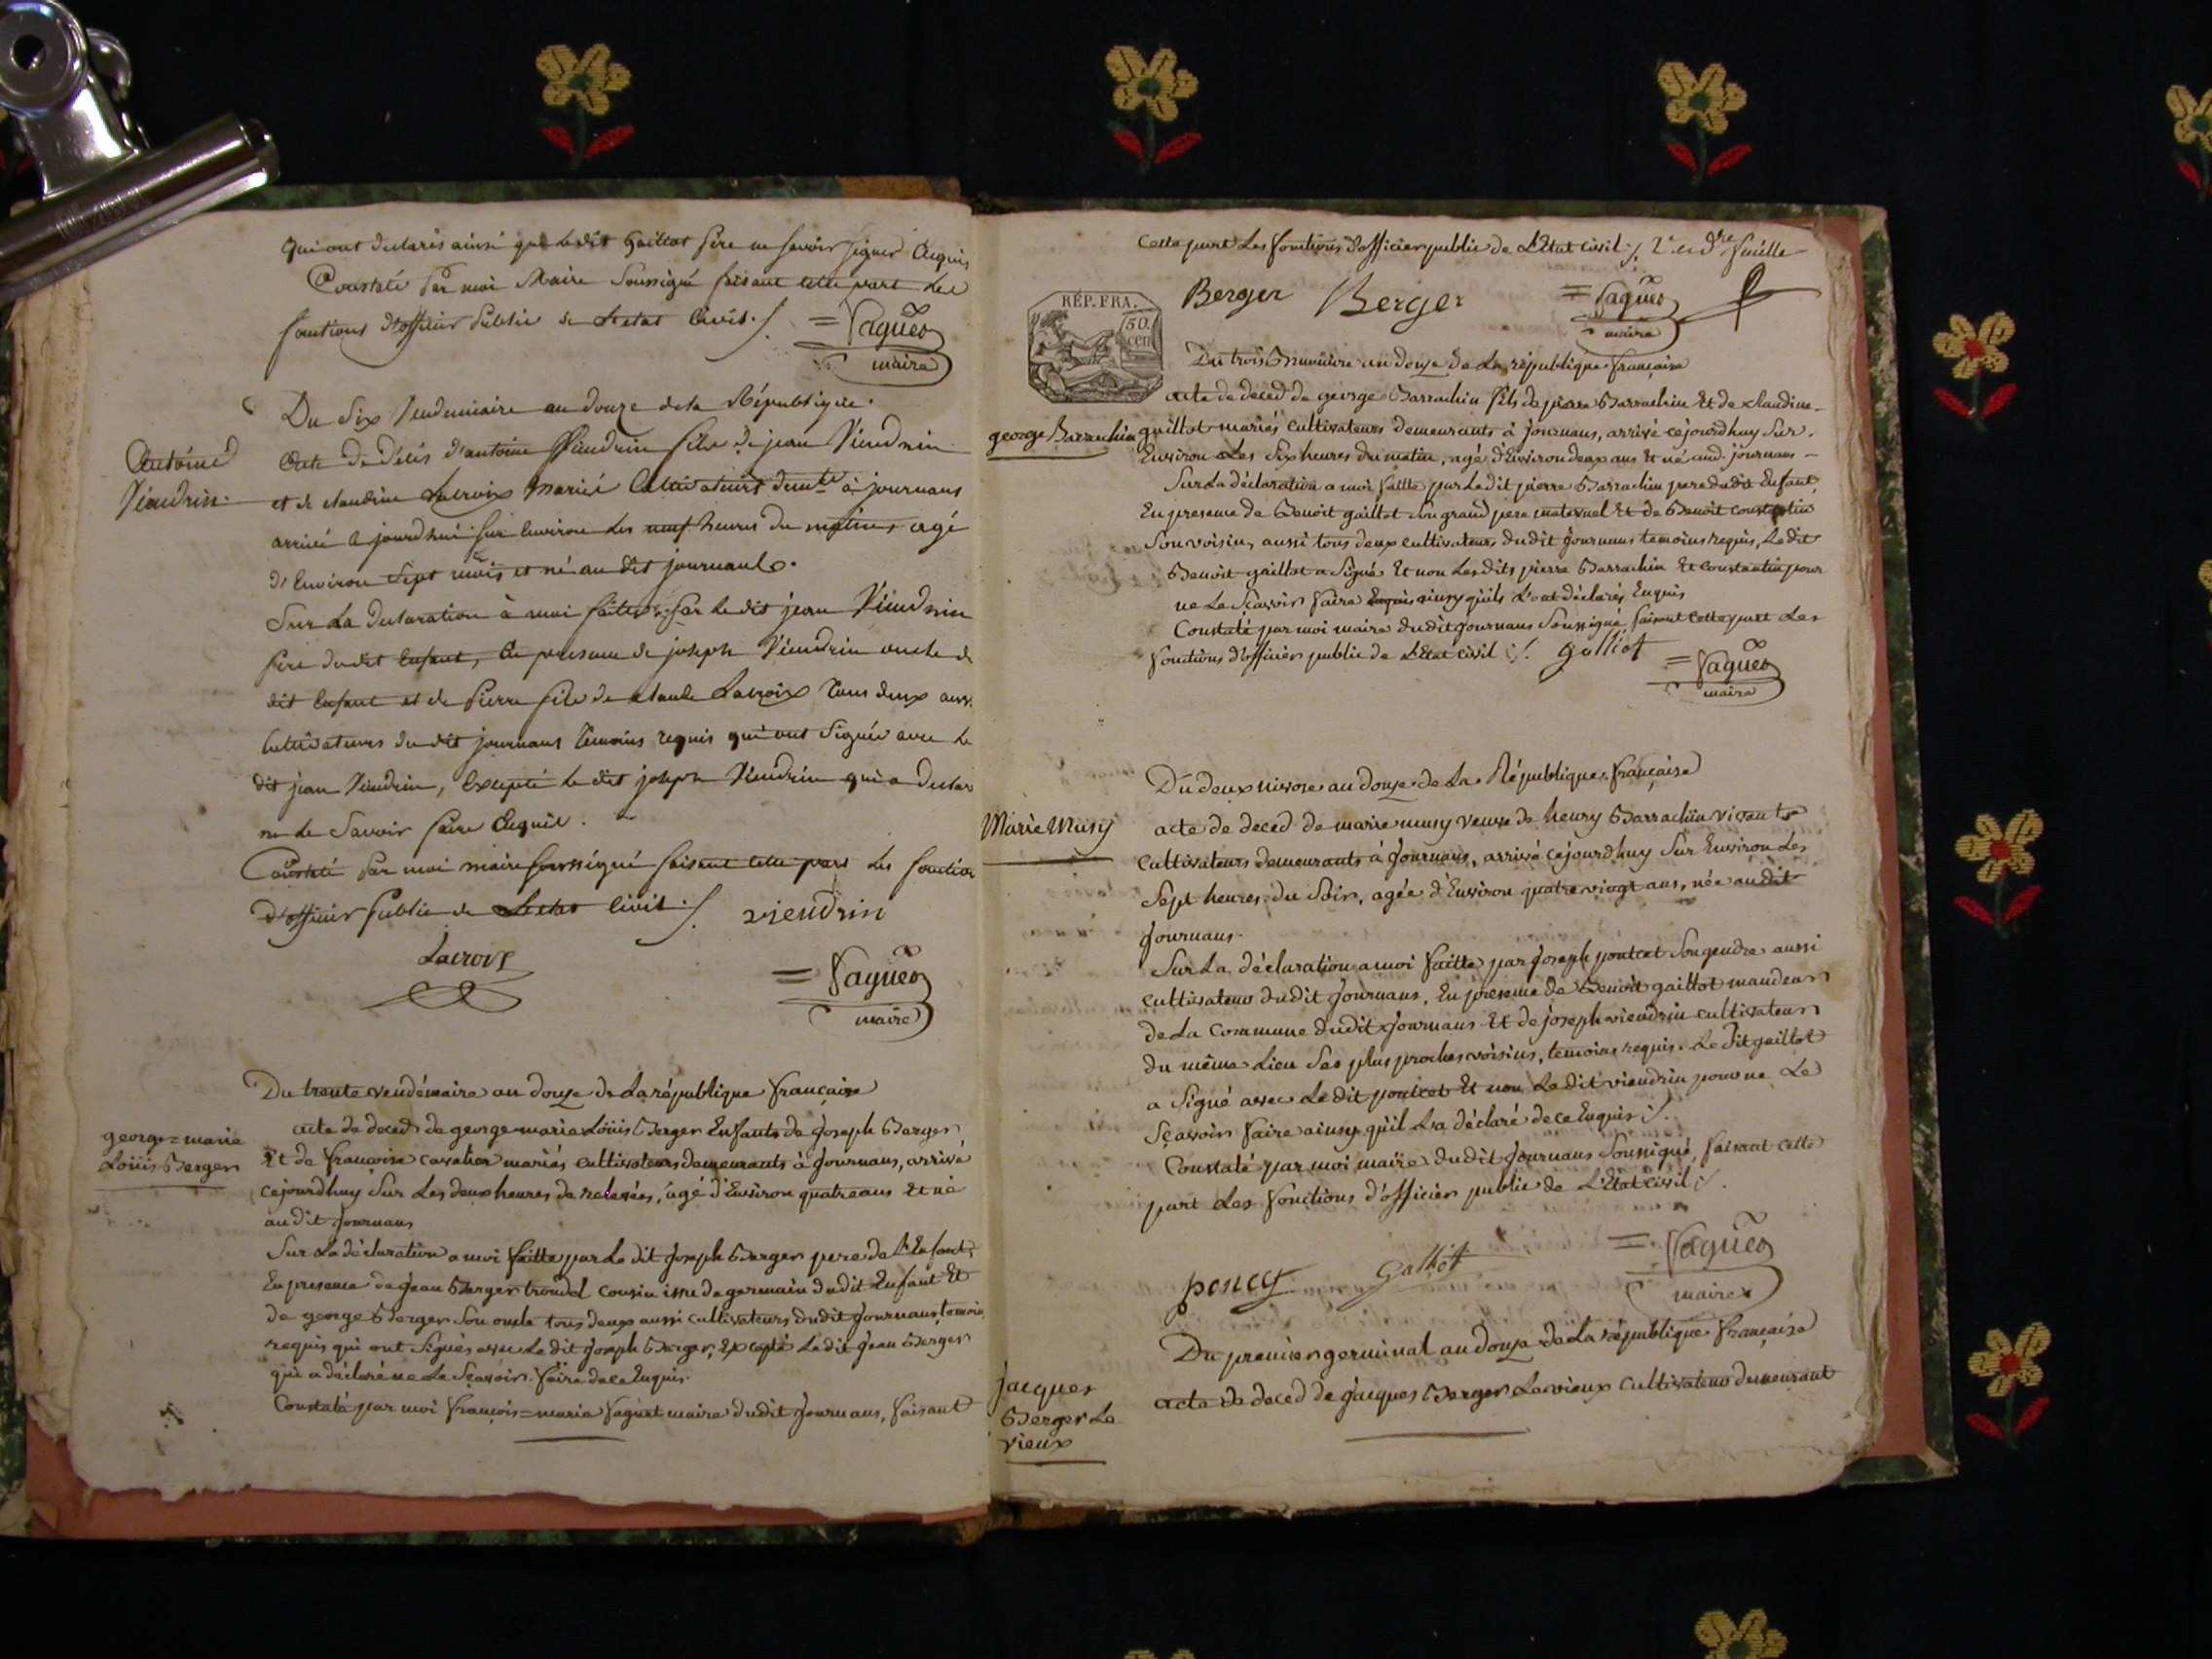 qui ont declarés ainsi que ledit Gaillot père ne savoir signer Requis
Constaté Par moi Maire Soussigné faisant cette part les
fonctions d'officier Public de Letat Civil ./.
= Vaguet
maire
Du Six Vendemiaire an douze de la République.
Antoine
Viendrin.
Acte de Décés d'antoine Viendrin fils de jean Viendrin
et de claudine Lacroix Mariés Cultivateurs demts à journans
arrivé ce jourd'hui sur Environ les neuf heures du matin, agé
d'Environ Sept mois et né au dit journans.
Sur La Declaration à moi faitte par Le dit jean Viendrin
père du dit Enfant, En presence de joseph Viendrin oncle du
dit Enfant et de Pierre fils de claude Lacroix Tous deux aussi
Cultivateurs du dit journans Témoins requis qui ont Signés avec Le
dit jean Viendrin, Excepté le dit joseph Viendrin qui a Declaré
ne le Savoir faire Requis.
Constaté Par moi maire soussigné faisant cette part les fonctions
d'officier Public de Letat Civil ./. viendrin
Lacroix
= Vaguet
maire
Du trente vendémiaire an douze de La république française
george=marie
Loüis Berger
acte de deced de george marie Loüis Berger Enfants de Joseph Berger
Et de françoise cavalier mariés cultivateurs demeurants à Journans, arrivé
cejourdhuy Sur Les deux heures de relevées, agé d'Environ quatre ans Et né
audit Journans
Sur La déclaration a moi faitte par Le dit Joseph Berger pere de L'Enfant,
En presence de Jean Berger trondel cousin issu de germain dudit Enfant Et
de george Berger Son oncle tous deux aussi cultivateurs dudit Journans, temoins
requis qui ont Signés avec Le dit Joseph Berger, Excepté Le dit Jean Berger
qui a déclaré ne Le Sçavoir faire de ce Enquis.
Constaté par moi françois=marie Vaguet maire dudit Journans, faisant
cette part Les fonctions d'officier public de L'Etat civil ./. 2e et dre feüille
RÉP. FRA.
50.
cen
Berger Berger
= Vaguet
maire
Du trois Brumaire an douze de La république française
george Barrachin
acte de deced de george Barrachin fils de pierre Barrachin Et de claudine
guillot mariés cultivateurs demeurants à journans, arrivé cejourdhuy Sur
Environ Les Six heures du matin, agé d'Environ deux ans Et né aud. journans
Sur La déclaration a moi faitte par Le dit pierre Barrachin pere dudit Enfant,
En presence de Benoit gaillot Son grand pere maternel Et de Benoit constantin
Son voisin, aussi tous deux cultivateurs dudit Journans temoins requis, Le dit
Benoit gaillot a Signé Et non Les dits pierre Barrachin Et Constantin pour
ne Le Sçavoir faire ainsy qu'ils L'ont déclarés Enquis
Constaté par moi maire dudit Journans Soussigné faisant cette part Les
fonctions d'officier public de L'Etat civil ./. galliot
= Vaguet
maire
Du deux nivose an douze de La République française
Marie Musy
acte de deced de marie musy veuve de henry Barrachin vivants
cultivateurs demeurants à Journans, arrivé cejourdhuy Sur Environ Les
Sept heures du Soir, agée d'Environ quatre vingt ans, née audit
Journans.
Sur La déclaration a moi faitte par Joseph pontcet Son gendre aussi
cultivateur dudit Journans, En presence de Benoit gaillot mandeur
de La Commune dudit Journans Et de joseph viendrin cultivateur
du même Lieu Ses plus proches voisins, temoins requis. Le dit gaillot
a Signé avec Le dit pontcet Et non Le dit viendrin pour ne Le
Sçavoir faire ainsy qu'il La déclaré de ce Enquis ./.
Constaté par moi maire dudit Journans Soussigné, faisant cette
part Les fonctions d'officier public de L'Etat civil ./.
poncet galliot
= Vaguet
maire
Du premier germinal an douze de La république française
jacques
Berger Le
vieux
acte de deced de Jacques Berger Le vieux cultivateur demeurant